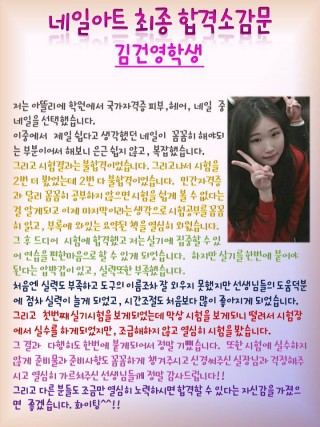 네일아트 최종 합격소감문
김건영학생
저는 아뜰리에 학원에서 국가자격증 피부,헤어, 네일 중
네일을 선택했습니다.
이중에서 제일 쉽다고 생각했던 네일이 꼼꼼히 해야되
는 부분이어서 해보니 은근 쉽지 않고, 복잡했습니다.
그리고 시험결과는 불합격이었습니다. 그리고나서 시험을
2번 더 봤었는데 2번 다 불합격이었습니다. 민간자격증
과 달리 꼼꼼히 공부하지 않으면 시험을 쉽게 볼 수 없다는
걸 알게되고 이게 마지막이라는생각으로 시험공부를꼼꼼
히 읽고, 부록에 와있는 요약된 책을 열심히 외웠습니다.
그 후 드디어 시험에 합격했고 저는실기에 집중할 수 있
어 연습을 편한마음으로 할 수 있게 되었습니다. 하지만 실기를한번에 붙어야
된다는 압박감이 있고, 실력또한 부족했습니다.
처음엔 실력도 부족하고 도구의 이름조차 잘 외우지 못했지만 선생님들의 도움덕분
에 점차 실력이 늘게 되었고, 시간조절도 처음보다 많이 좋아지게 되었습니다.
그리고 첫번째실기시험을 보게되었는데 막상 시험을 보게되니 떨려서 시험장
에서 실수를 하게되었지만, 조급해하지 않고 열심히 시험을 봤습니다.
그 결과 다행히도 한번에 붙게되어서 정말 기뻤습니다. 또한 시험에 실수하지
않게 준비물과 준비사항도꼼꼼하게 챙겨주시고 신경써주신 실장님과 걱정해주
시고 열심히 가르쳐주신 선생님들께 정말 감사드립니다!!
그리고 다른 분들도 조금만 열심히 노력하시면 합격할 수 있다는 자신감을 가졌으
면 좋겠습니다. 화이팅^^!!